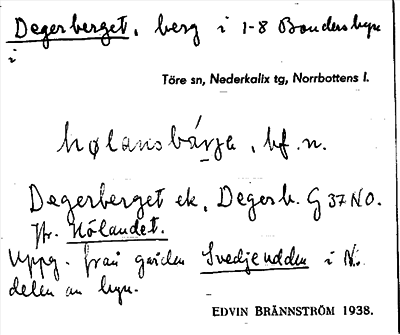 Degerberget, berg i 1-8 Bondersbyn
i
Töre sn, Nederkalix tg, Norrbottens l.
hølansbárja, bf. n.
Degerberget ek, Degerb. G 37 NO.
Jfr. Hölandet.
Uppg. från gården Svedjeudden i N.
delen av byn.
EDVIN BRÄNNSTRÖM 1938.